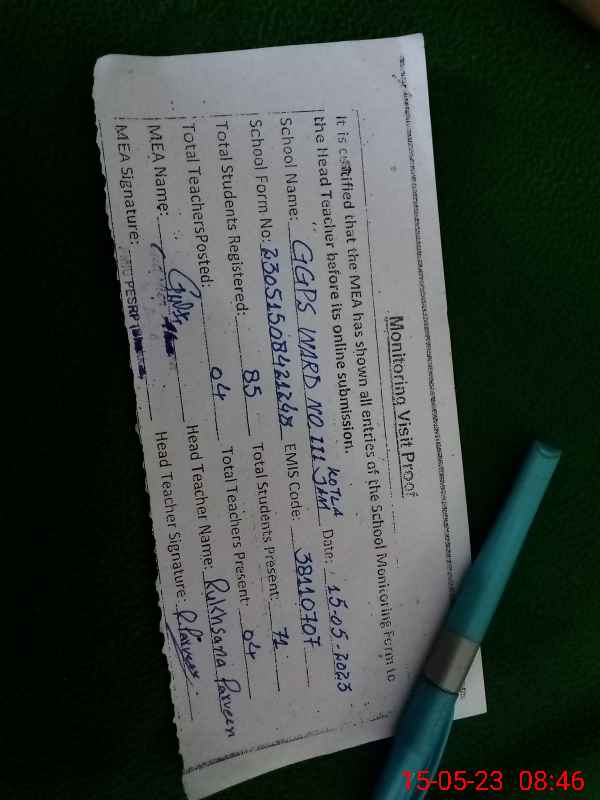 Monitoring Visit Proof
It is certified that the MEA has shown all entries of the School Monitoring Form to
the Head Teacher before its online submission.
School Name: GGPS WARD NO.III KOTLA JAM Date: 15-05-2023
School Form No: EMIS Code: 38110707
Total Students Registered: 85 Total Students Present: 71
Total TeachersPosted: 04 Total Teachers Present: 04
MEA Name: Head Teacher Name: Rukhsana Parveen
MEA Signature: PESRP Head Teacher Signature: R Parveen
15-05-23 08:46